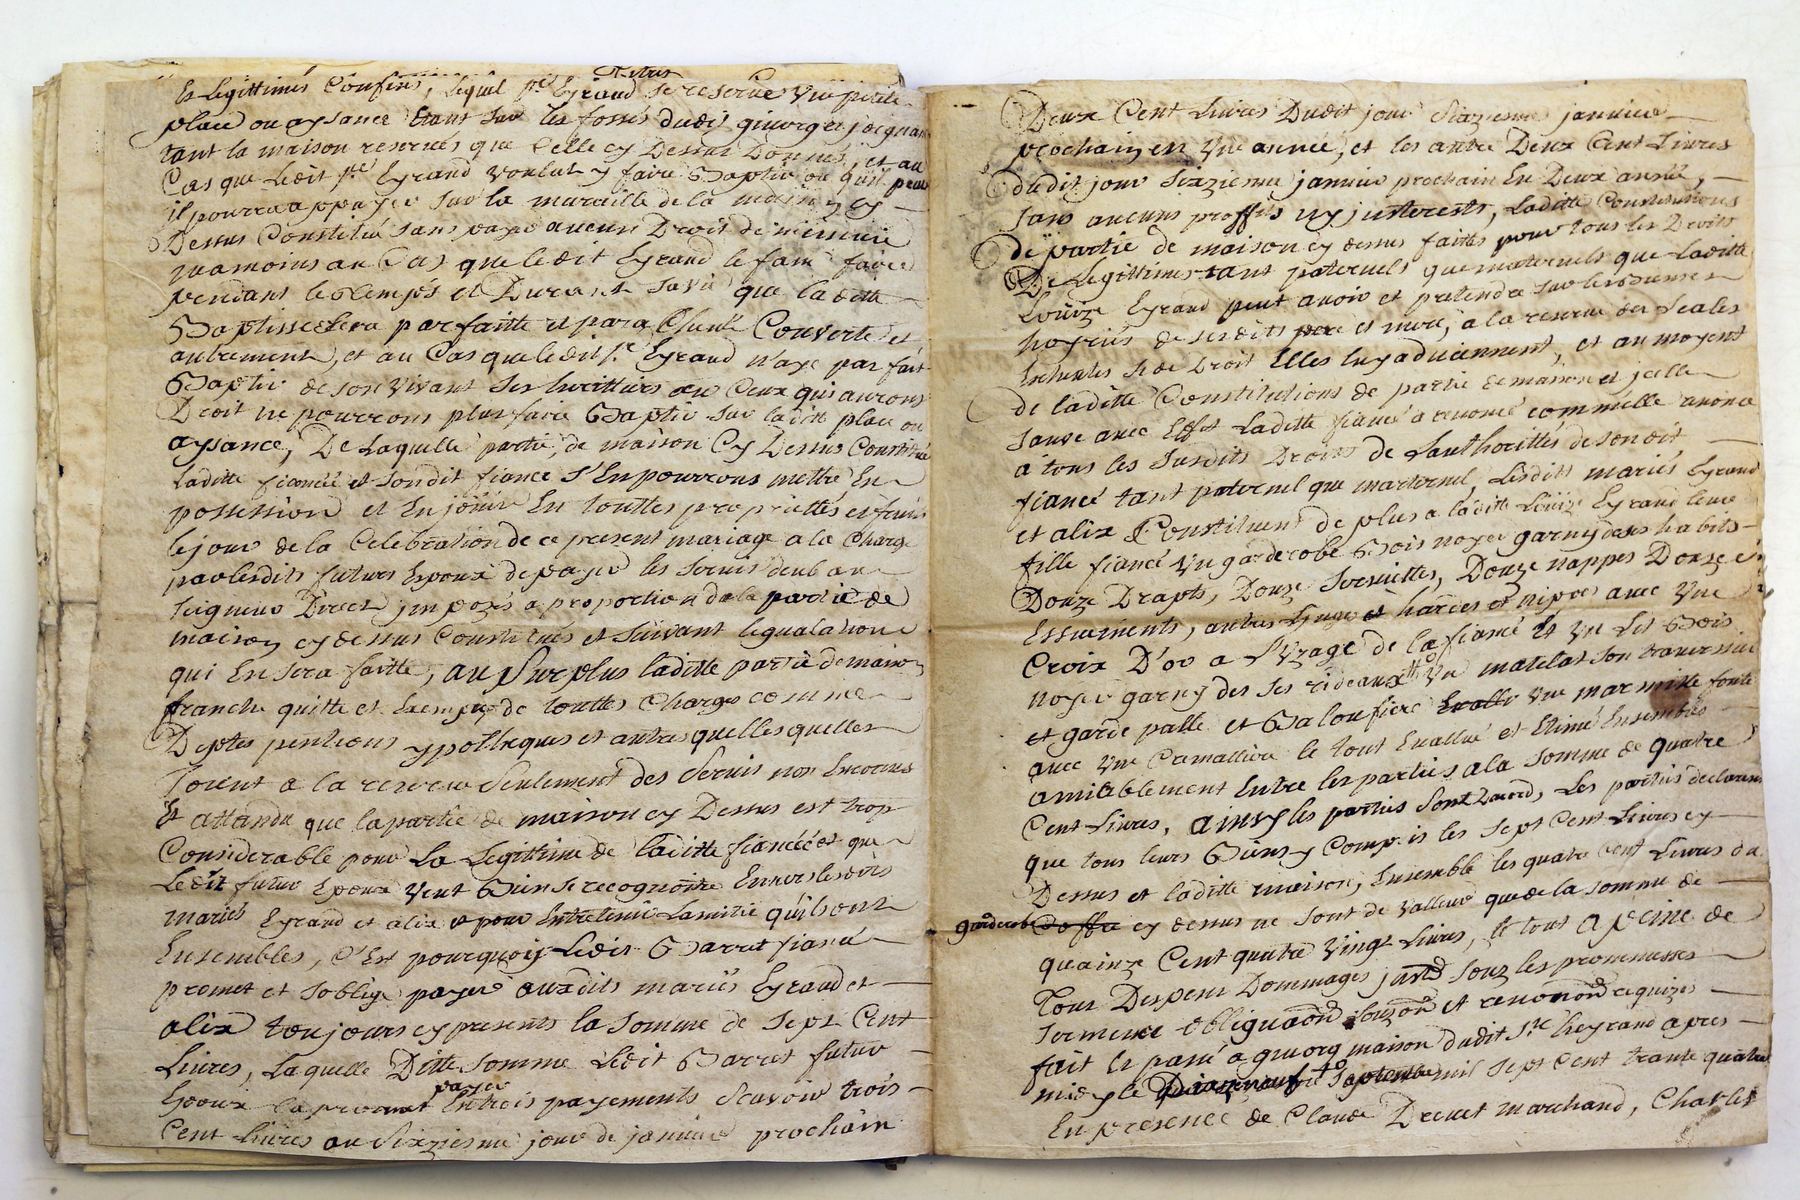 Et Legittimes Confins, Lequel sr Eyraud se reserve Une petite
place ou aysance Etant sur les fossés dudit gruorg et joignant
tant la maison reservés que Celle cy Dessus Donnés, et au
Cas que Ledit sr Eyraud Voulut y faire Baptir ou quil peut
il pourra appayer sur la muraille de la maison cy
Dessus Constitué sans payer aucun Droit de
quamoins au Cas que ledit Eyraud le fasse faire
pendant le temps et Durant sa vie que laditte
Baptisse sera parfaitte et para Couverte et
autrement, et au Cas que ledit sr Eyraud n'aye pas fait
Baptir de son vivant ses heritiers ou Ceux qui auront
Droit ne pourrons plus faire Baptir sur laditte place ou
aysance, De Laquelle partie de maison Cy Dessus Constitué
Laditte fiancée et sondit fiance s'En pourrons mettre En
possession et En jouir En touttes propriettés
le jour de la Celebration de ce present mariage a la Charge
par lesdits futurs Epoux de payer les servis deub au
seigneur Direct imposés a proportion de la partie de
maison cy dessus Constitués et suivant legualation
qui En sera faitte, au Surplus laditte partie de maison
franche quitte et Exempte de touttes Charges comme
Deptes pentions ypotheques et autres quelles quelles
soient a la reserve seulement des servis non Encorus
Et attandu que la partie de maison cy Dessus est trop
Considerable pour La Legittime de laditte fiancéé et que
Ledit futur Epoux Veut Bien se recognoitre Envers lesdits
mariés Eyraud et alix pour Entretenir Lamitié quils ont
Ensembles, C'Est pourquoy Ledit Barret fiancé
promet et s'oblige payer auxdits mariés Eyraud et
alix toujours cy presents la somme de sept Cent
Livres, Laquelle Ditte somme Ledit Barret futur
Epoux la promet payer En trois payements Scavoir trois
Cent Livres au Sixziesme jour de janvier prochain
Deux Cent Livres Dudit jour Sixziesme janvier
prochain en Une année, et les autre Deux Cent Livres
dudit jour Sixziesme janvier prochain En Deux année,
sans aucuns proffits ny jnterests, Laditte Constitutions
de partie de maison cy dessus faittes pour tous les Droits
De Legittimes tant paternels que maternels que Laditte
Louize Eyraud peut avoir et pretendre sur les Biens et
hoyries de sesdits pere et mere, a la reserve des Scales
Echeutes si de Droit Elles luy adviennent, et au moyent
de laditte Constitutions de partie de maison et jcelle
sauve avec Effet Laditte fiancé a renoncé comm'elle anonce
a tous les susdits Droits de Lauthorittés de son dit
fiancé tant paternel que marternel, Lesdits mariés Eyraud
et alix Constituent de plus a laditte Louize Eyraud leur
fille fiancé Un garderobe Bois noyer garny de ses habits
Douze Drapts, Douze serviettes, Douze nappes Douze
Essuements, autres Linge et hardes et nipes avec Une
Croix D'or a l'Uzage de la fiancé Et Un Lit Bois
noyer garny des ses rideaux Un matelat son traversier
et garde palle et Baloufiere Une marmitte fonte
avec Une Cramalliere le tout Evallué et Etimé Ensembles
amiablement Entre les parties a la somme de quatre
Cent Livres, ainsy les parties sont Daccord, Les parties declarent
que tous leurs Biens y Compris les sept Cent Livres cy
Dessus et laditte maison, Ensemble les quatre Cent Livres du
garderobe cy dessus ne sont de Valleur que de la somme de
quainze Cent quatre Vingt Livres, le tout a peine de
tous Despens Dommages jnts souz les prommesses
serment obliguaons souzons et renonons requizes
fait et passé a gruorg maison dudit sr heyraud apres
midy le Dixneuf 7bre Septembre mil sept Cent trante quatre
En presence de Claude Decret marchand, Charles